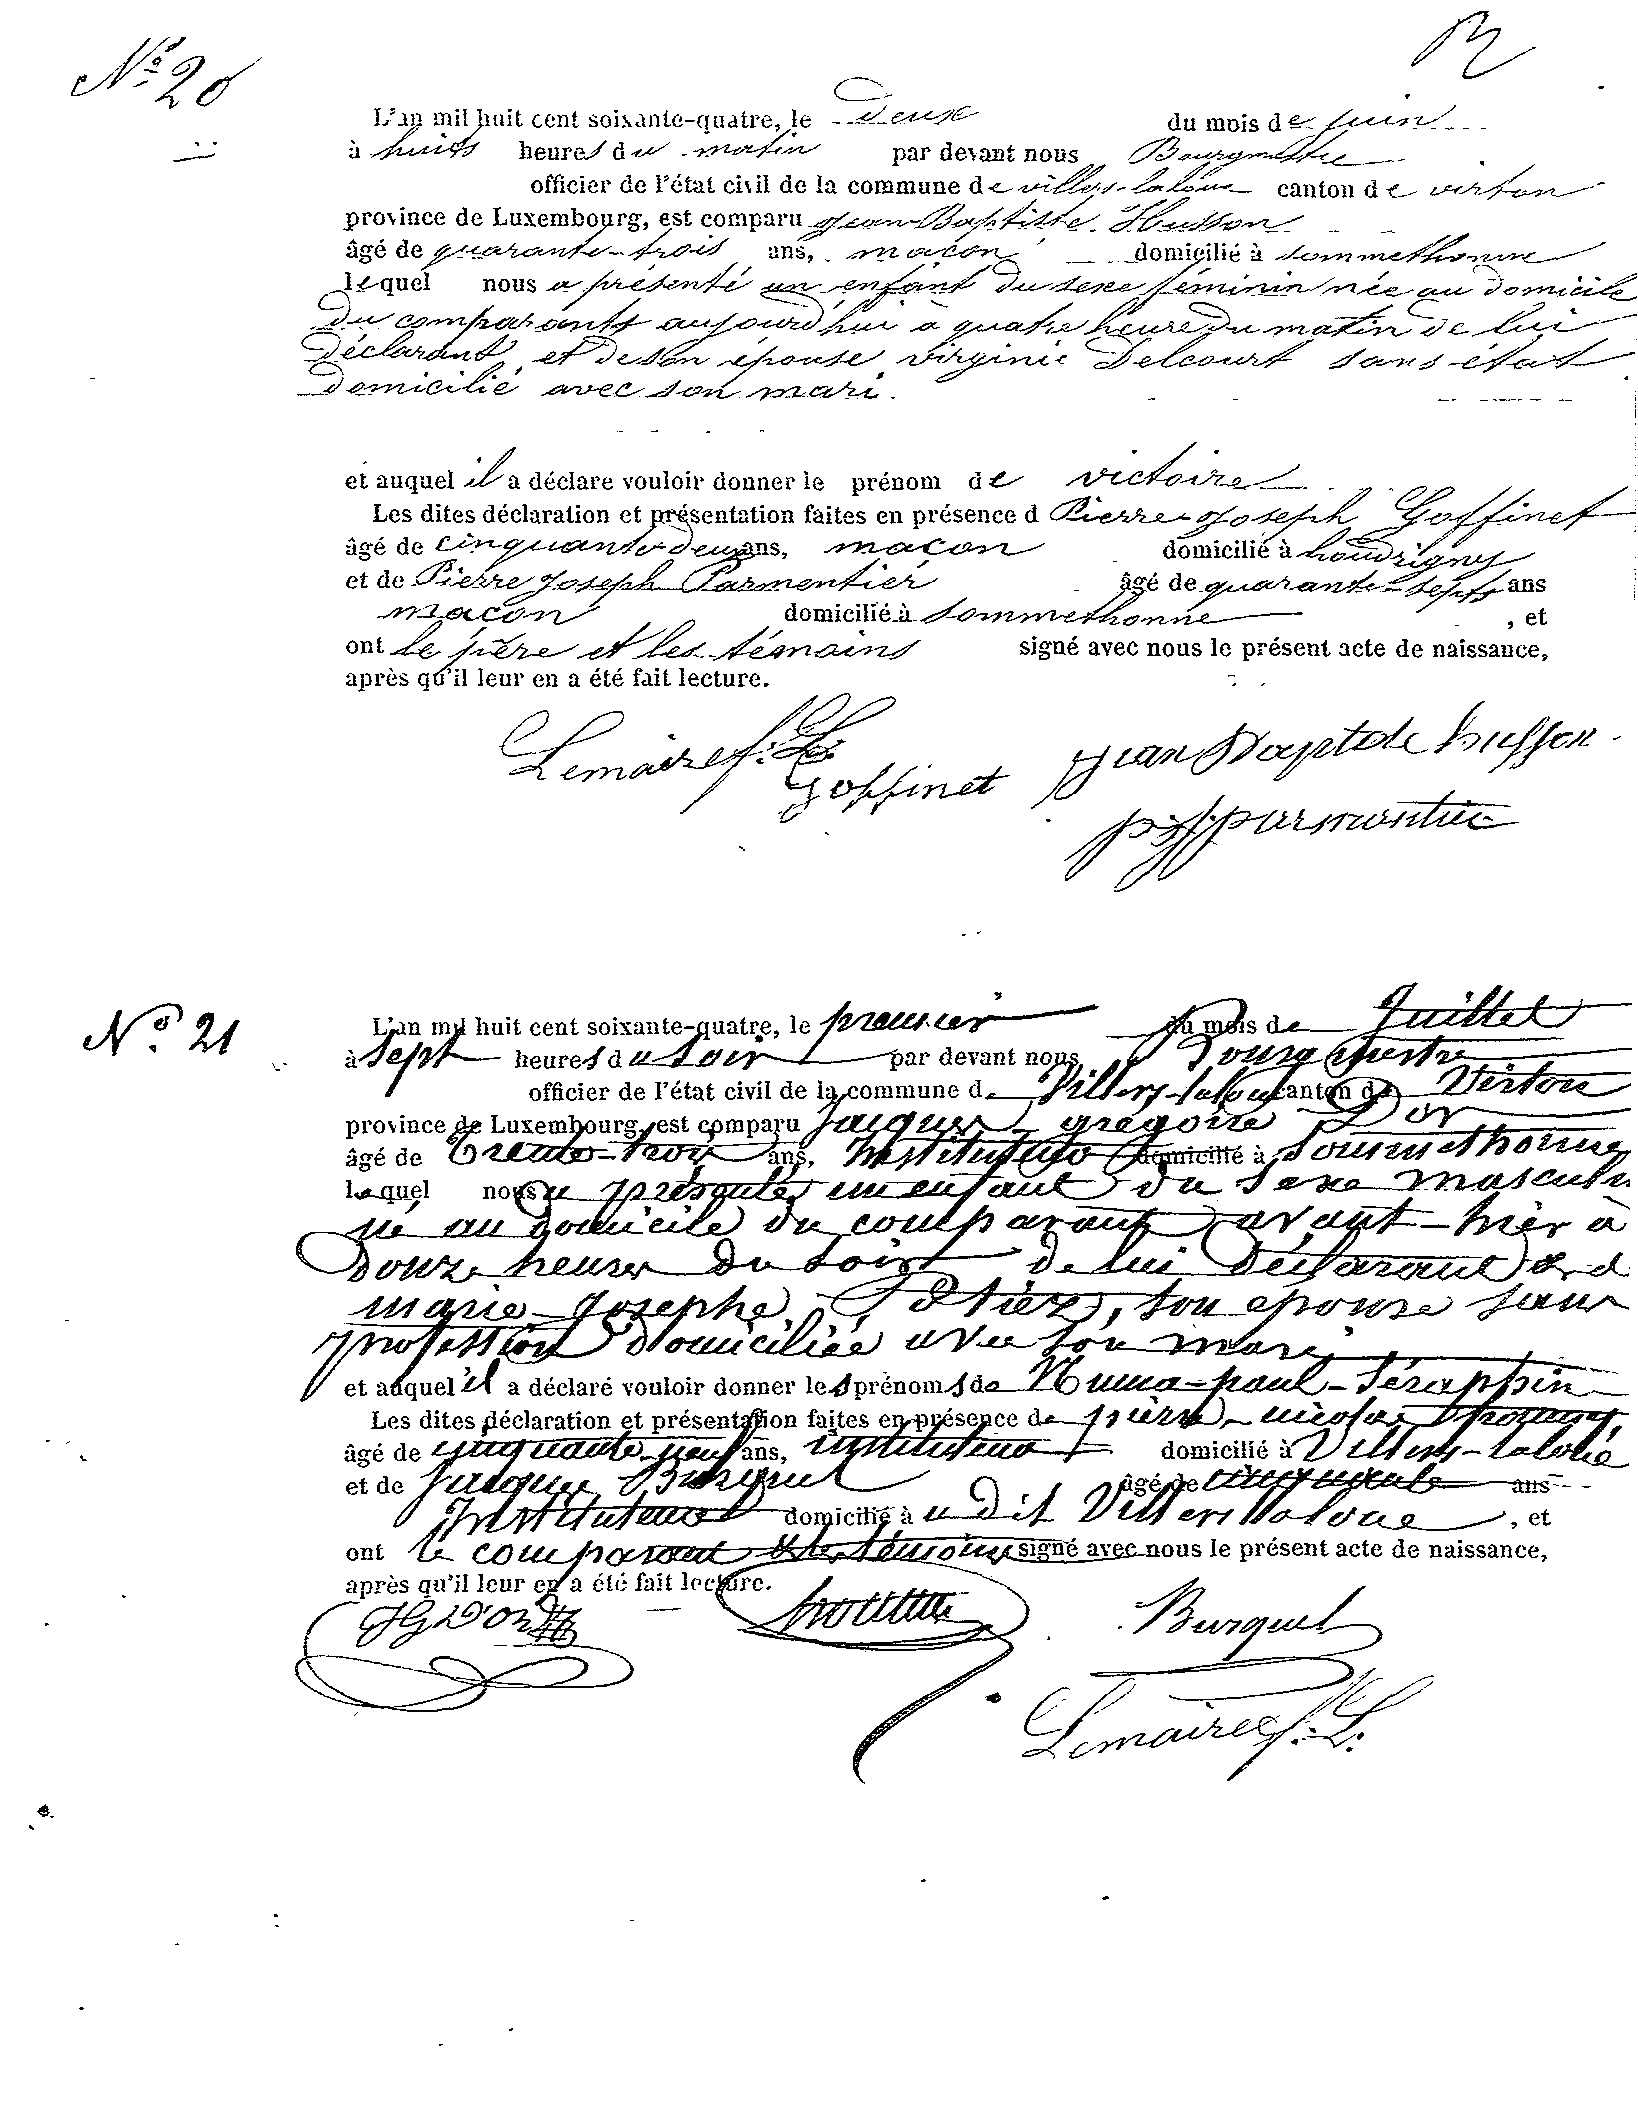 N° 20
L'an mil huit cent soixante-quatre, le deux du mois de juin
à huits heures du matin par devant nous Bourgmestre
officier de l'état civil de la commune de villers-laloue canton de virton
province de Luxembourg, est comparu jean Baptiste Husson
âgé de quarante-trois ans, macon domicilié à sommethonne
lequel nous a présenté un enfant du sexe féminin née au domicile
du comparants aujourd'hui à quatre heure du matin de lui
déclarant et de son épouse virginie Delcourt sans état
domicilié avec son mari.
et auquel il a déclare vouloir donner le prénom de victoire
Les dites déclaration et présentation faites en présence d Pierre-joseph Goffinet
âgé de cinquante-deux ans, macon domicilié à houdrigny
et de Pierre joseph Parmentier âgé de quarante-septs ans
macon domicilié à sommethonne , et
ont le père et les témoins signé avec nous le présent acte de naissance,
après qu'il leur en a été fait lecture.
Lemaire f: L:
jean Baptste husson
Goffinet
pjparmentier
N° 21
L'an mil huit cent soixante-quatre, le premier du mois de Juillet
à sept heures du soir par devant nous Bourgmestre
officier de l'état civil de la commune de Villers-laloue canton de Virton
province de Luxembourg, est comparu jacques grégoire Dor
âgé de trente-trois ans, instituteur domicilié à Sommethonne
lequel nous a présenté un enfant du sexe masculin
né au domicile du comparant avant-hier à
douze heures du soir de lui déclarant & d
marie-Josephe , son épouse sans
profession domiciliée avec son mari
et auquel il a déclaré vouloir donner les prénoms de Numa-paul-Séraphin
Les dites déclaration et présentation faites en présence de pierre-nicolas
âgé de cinquante-neuf ans, instituteur domicilié à Villers-laloue
et de Jacques Burquel âgé de cinquante ans
Instituteur domicilié à u dit Villers laloue , et
ont le comparant & les témoins signé avec nous le présent acte de naissance,
après qu'il leur en a été fait lecture.
JG Dor
Burquel
Lemaire f: L: